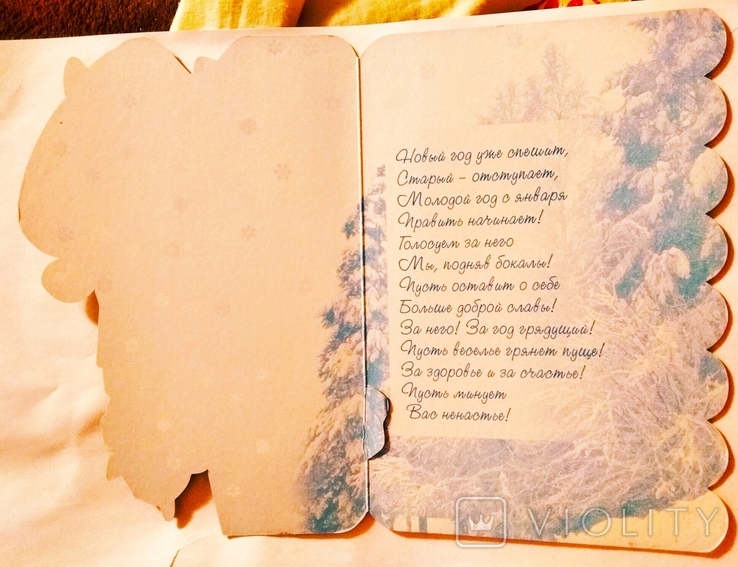 Новый год уже спешит,
Старый – отступает,
Молодой год с января
Править начинает!
Голосуем за него
Мы, подняв бокалы!
Пусть оставит о себе
Больше доброй славы!
За него! За год грядущий!
Пусть веселье грянет пуще!
За здоровье и за счастье!
Пусть минует
Вас ненастье!
VIOLITY